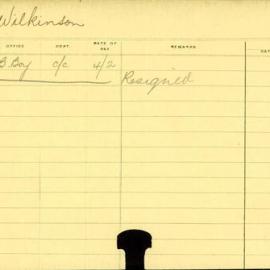 Wilkinson
OFFICE DEPT. RATE OF PAY REMARKS
B. Boy c/c 4/2
Resigned